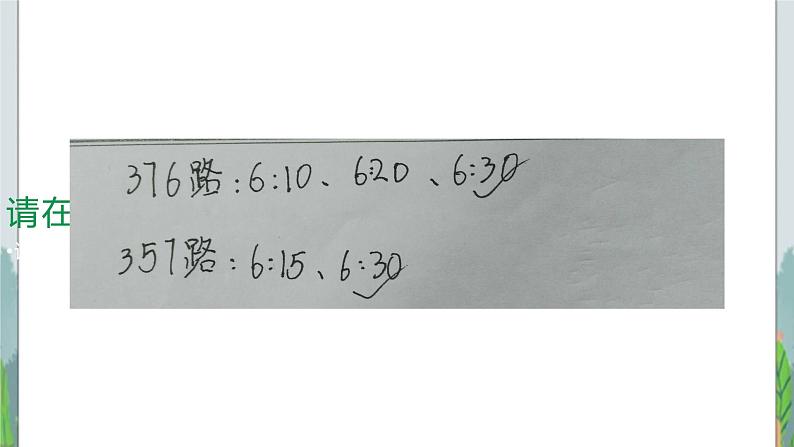 376路:6:10、6:20、6:30
请在
357路:6:15、6:30